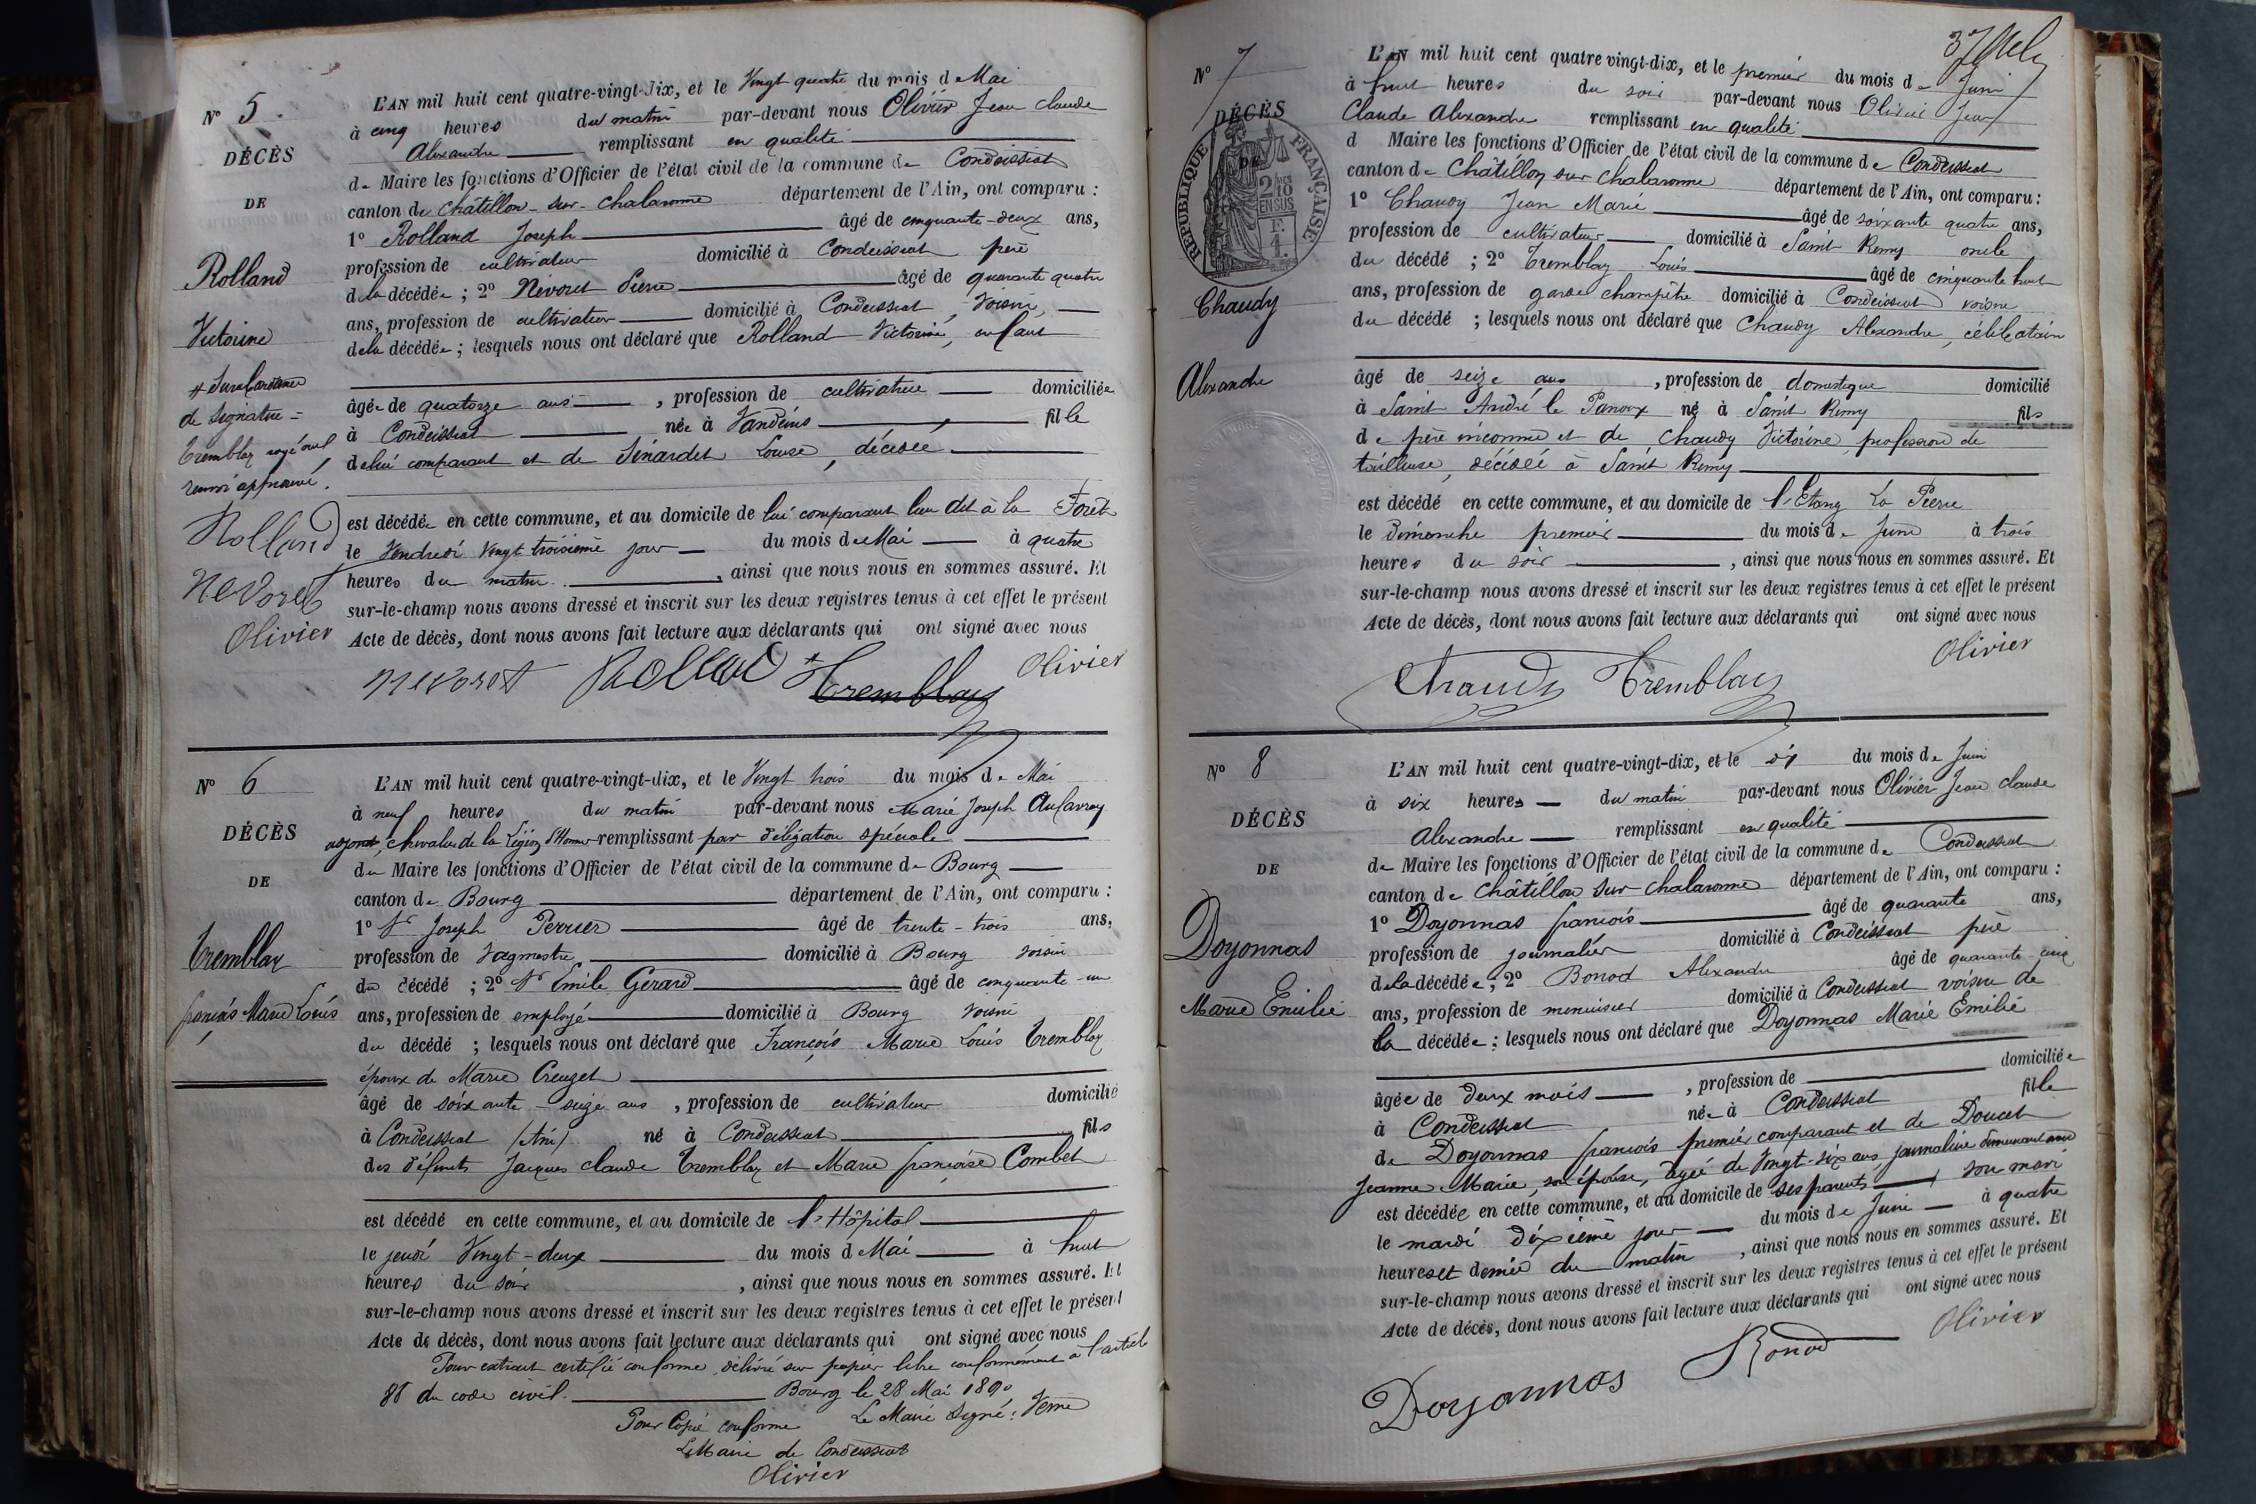 N° 5.
DÉCÈS
DE
Rolland
Victorine
# Surabondance
de signature =
Tremblay rayé nul
renvoi approuvé.
Rolland
Nevoret
Olivier
L'AN mil huit cent quatre-vingt-dix, et le Vingt quatre du mois de Mai
à cinq heures du matin par-devant nous Olivier Jean Claude
Alexandre remplissant en qualité
de Maire les fonctions d'Officier de l'état civil de la commune de Condeissiat
canton de Châtillon-sur-Chalaronne département de l'Ain, ont comparu :
1° Rolland Joseph âgé de cinquante-deux ans,
profession de cultivateur domicilié à Condeissiat père
de la décédée ; 2° Nevoret Pierre âgé de quarante quatre
ans, profession de cultivateur domicilié à Condeissiat, voisin,
de la décédée ; lesquels nous ont déclaré que Rolland Victorine, enfant
âgée de quatorze ans, profession de cultivatrice domiciliée
à Condeissiat née à Vandeins fille
de lui comparant et de Sénardet Louise, décédée
est décédée en cette commune, et au domicile de lui comparant lieu dit à la Forêt
le Vendredi vingt troisième jour du mois de Mai à quatre
heures du matin, ainsi que nous nous en sommes assuré. Et
sur-le-champ nous avons dressé et inscrit sur les deux registres tenus à cet effet le présent
Acte de décès, dont nous avons fait lecture aux déclarants qui ont signé avec nous
nevoret Rolland # Tremblay Olivier
N° 6
DÉCÈS
DE
Tremblay
françois Marie Louis
L'AN mil huit cent quatre-vingt-dix, et le Vingt trois du mois de Mai
à neuf heures du matin par-devant nous Marie Joseph
adjoint, chevalier de la Légion d'Honneur remplissant par délégation spéciale
du Maire les fonctions d'Officier de l'état civil de la commune de Bourg
canton de Bourg département de l'Ain, ont comparu :
1° Sr Joseph Perrier âgé de trente-trois ans,
profession de Vagmestre domicilié à Bourg voisin
du décédé ; 2° Sr Emile Gerard âgé de cinquante-un
ans, profession de employé domicilié à Bourg voisin
du décédé ; lesquels nous ont déclaré que François Marie Louis Tremblay
époux de Marie Creuzet
âgé de soixante-seize ans, profession de cultivateur domicilié
à Condeissiat (Ain) né à Condeissiat fils
des défunts Jacques Claude Tremblay et Marie françoise Combet
est décédé en cette commune, et au domicile de l'Hôpital
le jeudi Vingt-deux du mois de Mai à huit
heures du soir, ainsi que nous nous en sommes assuré. Et
sur-le-champ nous avons dressé et inscrit sur les deux registres tenus à cet effet le présent
Acte de décès, dont nous avons fait lecture aux déclarants qui ont signé avec nous
Pour extrait certifié conforme, délivré sur papier libre conformément à l'article
80 du code civil. Bourg le 28 Mai 1890
Le Maire signé : Verne
Pour Copie conforme
Le Maire de Condeissiat
Olivier
37
N° 7
DÉCÈS
DE
RÉPUBLIQUE FRANÇAISE
2 10mes
EN SUS
Chaudy
Alexandre
L'AN mil huit cent quatre vingt-dix, et le premier du mois de Juin
à huit heures du soir par-devant nous Olivier Jean
Claude Alexandre remplissant en qualité
d Maire les fonctions d'Officier de l'état civil de la commune de Condeissiat
canton de Châtillon sur Chalaronne département de l'Ain, ont comparu :
1° Chaudy Jean Marie âgé de soixante quatre ans,
profession de cultivateur domicilié à Saint Remy oncle
du décédé ; 2° Tremblay Louis âgé de cinquante huit
ans, profession de garde champêtre domicilié à Condeissiat voisin
du décédé ; lesquels nous ont déclaré que Chaudy Alexandre, célibataire
âgé de seize ans, profession de domestique domicilié
à Saint André le Panoux né à Saint Remy fils
de père inconnu et de Chaudy Victorine, profession de
tailleuse, décédée à Saint Remy
est décédé en cette commune, et au domicile de l'Etang La Pierre
le dimanche premier du mois de Juin à trois
heures du soir, ainsi que nous nous en sommes assuré. Et
sur-le-champ nous avons dressé et inscrit sur les deux registres tenus à cet effet le présent
Acte de décès, dont nous avons fait lecture aux déclarants qui ont signé avec nous
Chaudy Tremblay Olivier
N° 8
DÉCÈS
DE
Doyonnas
Marie Emilie
L'AN mil huit cent quatre-vingt-dix, et le dix du mois de Juin
à six heures du matin par-devant nous Olivier Jean Claude
Alexandre remplissant en qualité
de Maire les fonctions d'Officier de l'état civil de la commune de Condeissiat
canton de Châtillon sur Chalaronne département de l'Ain, ont comparu :
1° Doyonnas françois âgé de quarante ans,
profession de journalier domicilié à Condeissiat père
de la décédée ; 2° Bonod Alexandre âgé de quarante-cinq
ans, profession de menuisier domicilié à Condeissiat voisin de
la décédée ; lesquels nous ont déclaré que Doyonnas Marie Emilie
âgée de deux mois, profession de domiciliée
à Condeissiat née à Condeissiat fille
de Doyonnas françois premier comparant et de Doucet
Jeanne Marie, son épouse, âgée de Vingt-six ans journalière demeurant avec
son mari
est décédée en cette commune, et au domicile de ses parents
le mardi dixième jour du mois de Juin à quatre
heures et demie du matin, ainsi que nous nous en sommes assuré. Et
sur-le-champ nous avons dressé et inscrit sur les deux registres tenus à cet effet le présent
Acte de décès, dont nous avons fait lecture aux déclarants qui ont signé avec nous
Doyonnas Bonod Olivier